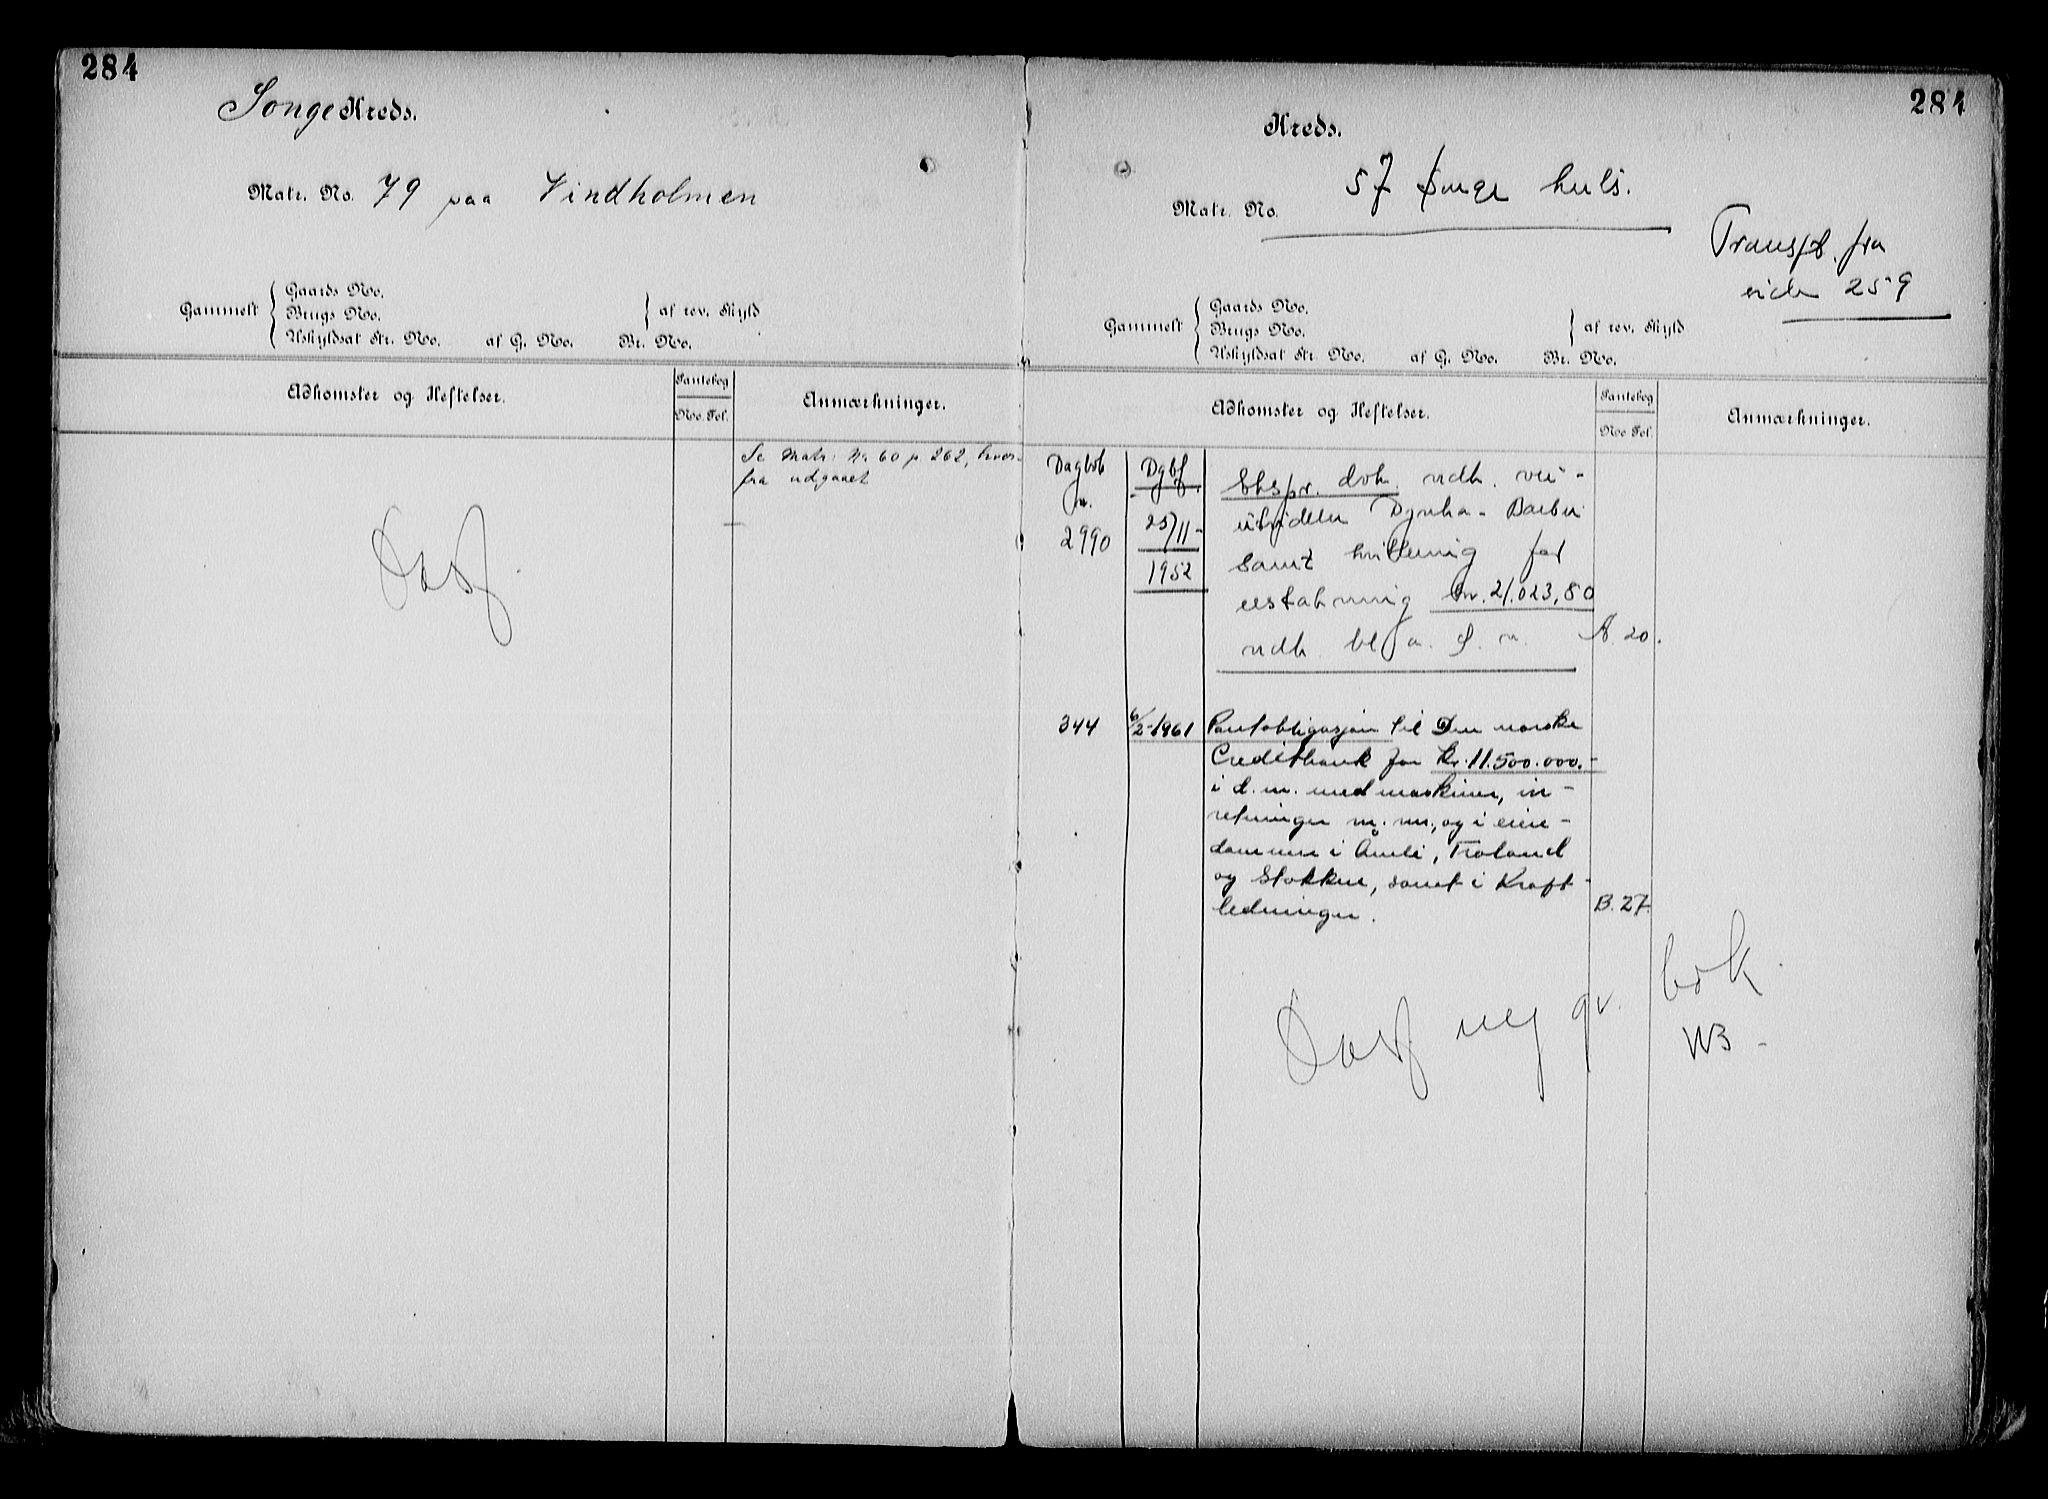 284
Songe Kreds.
Matr. No. 79 paa Vindholmen
Gammelt
Gaards No.
Brugs No.
Uskyldsat Str. No. af G. No. Br. No.
af rev. Skyld
Adkomster og Heftelser.
Pantebog
No. Fol.
Anmærkninger.
Se Matr: No 60 p. 262, hvor-
fra udgaaet
284
Kreds.
Matr. No. 57 Songe
Transpt. fra
side 259
Gammelt
Gaards No.
Brugs No.
Uskyldsat Str. No. af G. No. Br. No.
af rev. Skyld
Adkomster og Heftelser.
Pantebog
No Fol.
Anmærkninger.
Dagbok
nr.
2990
Dgbf.
25/11-
1952
Ekspr. dok. vedk. vei-
utvidelse Barbu
samt kvittering for
erstatning kr. 21.023,80
vedk. bl. a. d. m. A. 20.
344 6/2-1961 Pantobligasjon til Den norske
Creditbank for kr. 11.500.000.-
i d. m. med maskiner, inn-
retninger m. m., og i eien-
dommer i Åmli, Froland
og Stokken, samt i Kraft-
ledninger. B. 27.
bok